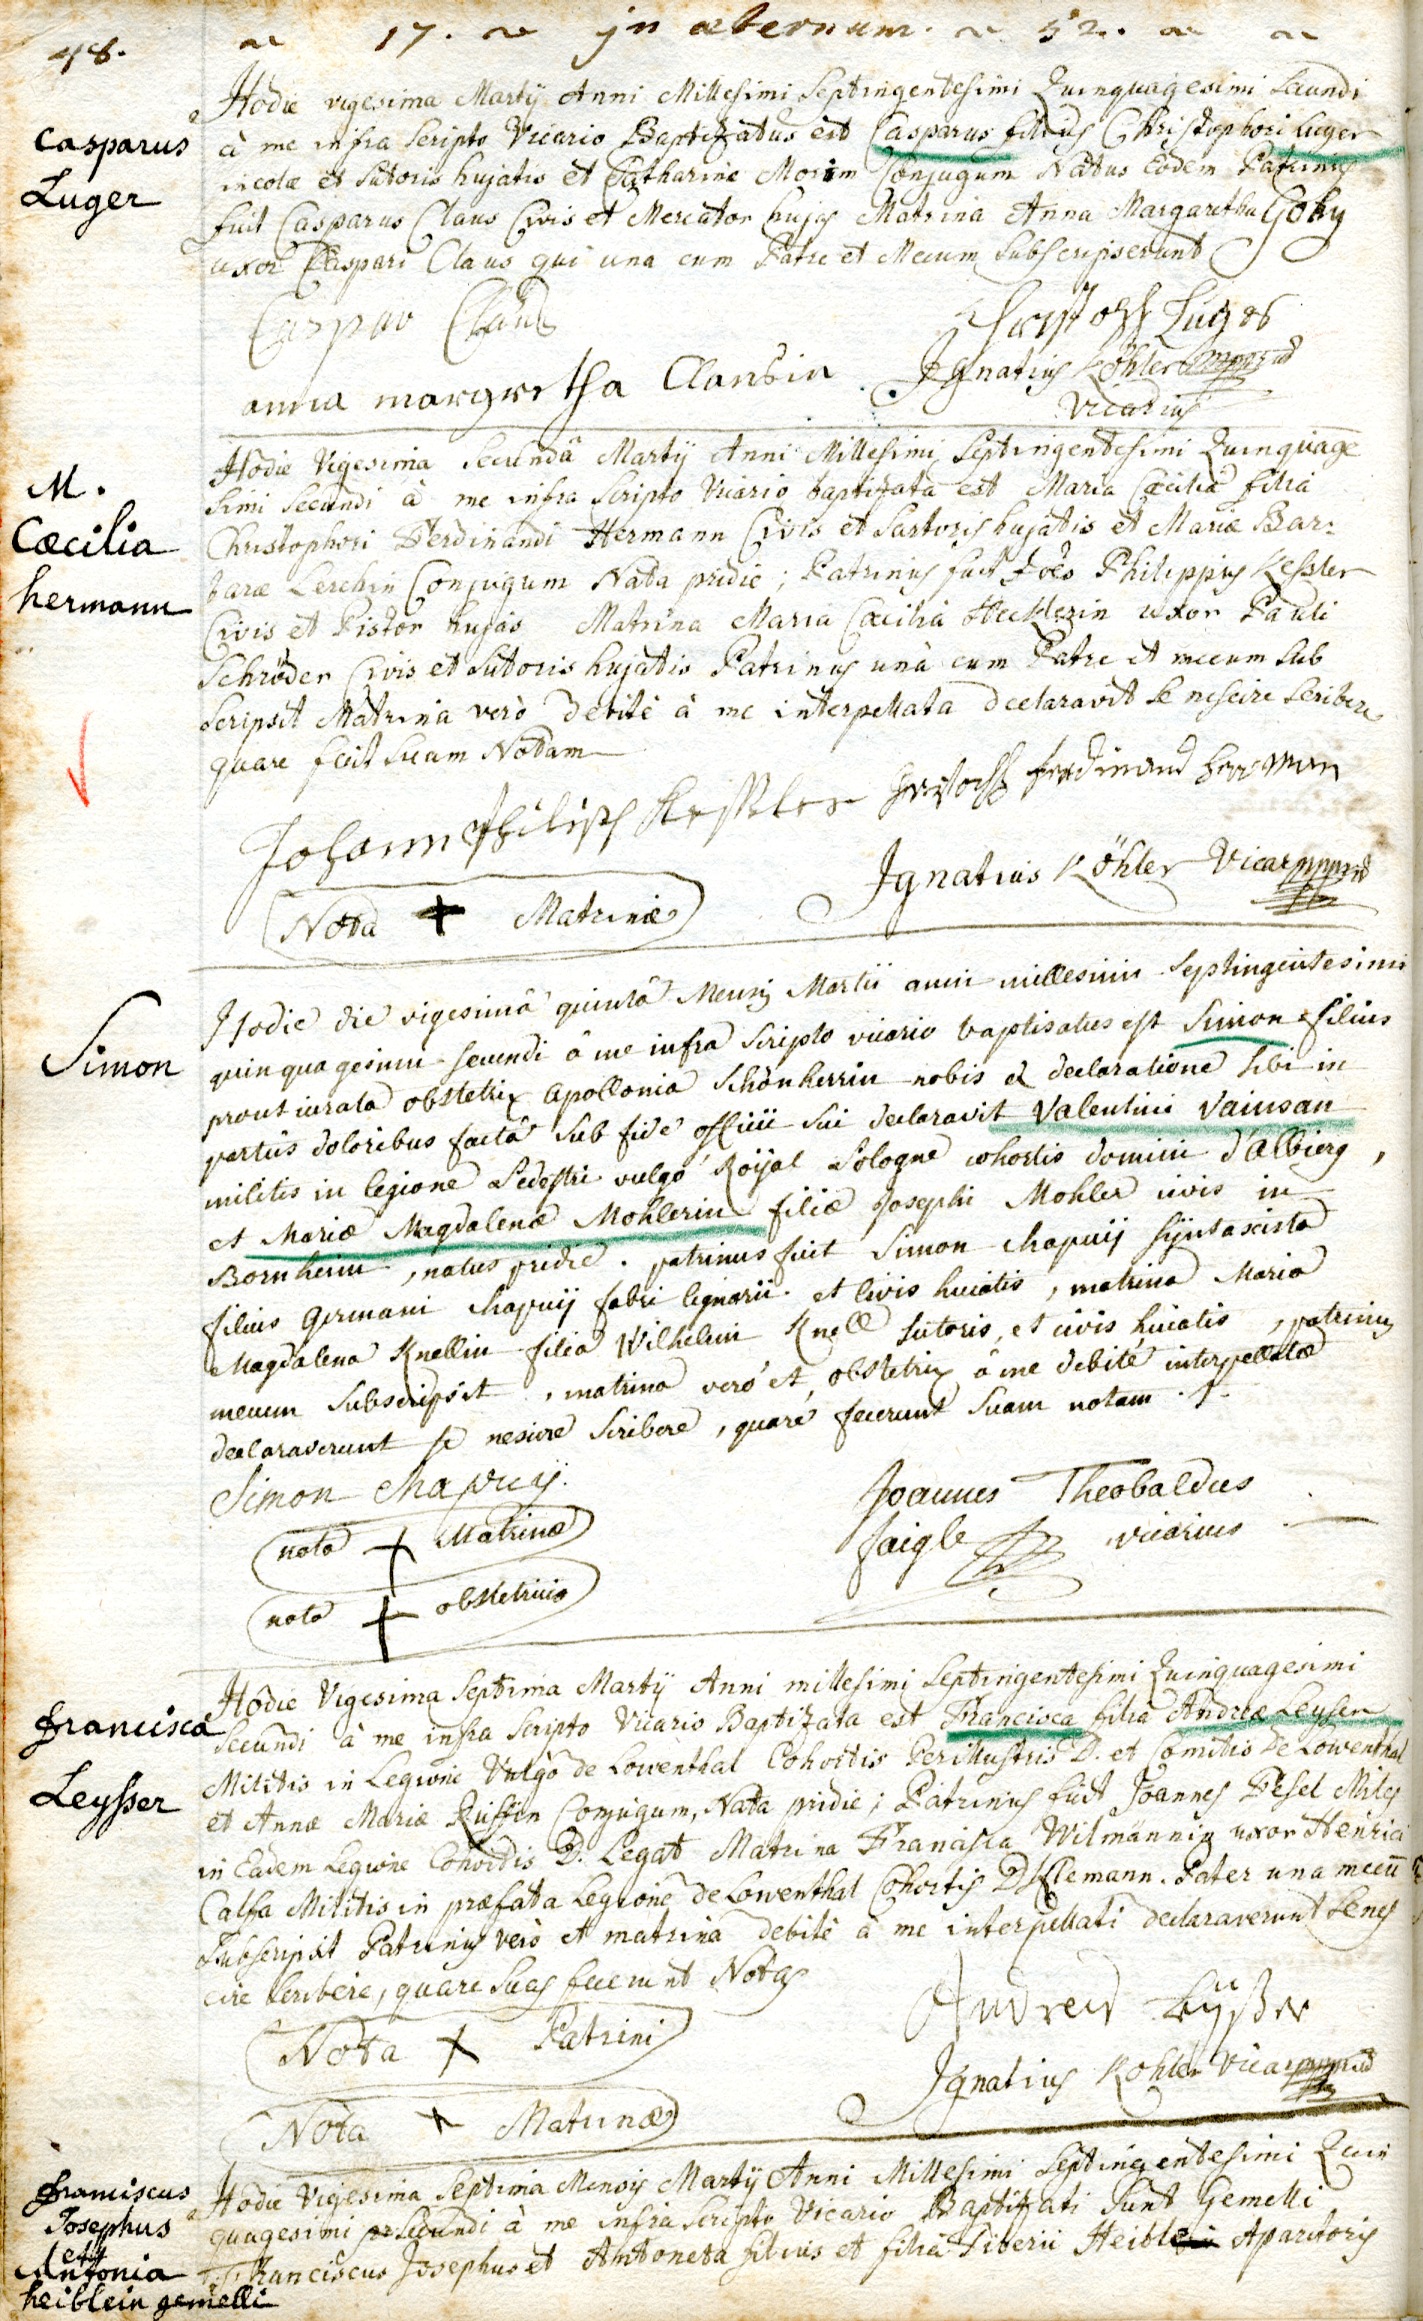 48.
17. jn æternum. 52.
Casparus
Luger
Hodie vigesima Martij Anni Millesimi Septingentesimi Quinquagesimi Secundi
à me infra scripto Vicario Baptizatus est Casparus filius Christophori Luger
incolæ et Sutoris hujatis et Catharinæ Conjugum Natus Eodem Patrinus
fuit Casparus Claus Civis et Mercator hujas Matrina Anna Margaretha Goby
uxor Caspari Claus qui una cum Patre et Mecum Subscripserunt
Caspar Claus
Christoph Luger
anna margretha Clausin
Jgnatius Köhler
Vicarius
M.
Cæcilia
hermann
Hodie Vigesima Secundâ Martij Anni Millesimi Septingentesimi Quinquage
simi Secundi à me infra Scripto Vicario baptizata est Maria Cæcilia filia
Christophori Ferdinandi Hermann Civis et Sartoris hujatis et Mariæ Bar:
baræ Lerchin Conjugum Nata pridie; Patrinus fuit Joês Philippus Kessler
Civis et Pistor hujas Matrina Maria Cæcilia Hecklerin uxor Pauli
Schröder Civis et Sutoris hujatis Patrinus unà cum Patre et mecum Sub
scripsit Matrina verò debitè à me interpellata declaravit se nescire scribere
quare fecit suam Notam
Johann Philips Kessler
Christoph ferdinand herrman
Jgnatius Köhler Vicar
Nota + Matrinæ
Simon
Hodie die vigesimâ quintâ Mensis Martii anni millesimi Septingentesimi
quinquagesimi secundi â me infra scripto vicario baptisatus est Simon filius
prout iurata obstetrix Apollonia Schönherrin nobis ex declaratione sibi in
partûs doloribus factâ sub fide officii sui declaravit Valentini Vainsan
militis in legione Pedestri vulgo Roÿal Pologne cohortis domini d'Albierg,
et Mariæ Magdalenæ Mohlerin filiæ Josephi Mohler civis in
Bornheim, natus pridie. patrinus fuit Simon Chapuij Sijntaxista
filius Germani Chapuij fabri lignarii et civis huiatis, matrina Maria
Magdalena Knellin filia Wilhelmi Knell Sutoris, et civis huiatis, patrinus
mecum subscripsit, matrina verò et obstetrix â me debitè interpellatæ
declaraverunt se nescire scribere, quarè fecerunt suam notam.
Simon Chapuij.
Joannes Theobaldus
Jaigle vicarius
nota + Matrinæ
nota + obstetricis
francisca
Leysser
Hodie Vigesima Septima Martij Anni millesimi Septingentesimi Quinquagesimi
Secundi à me infra Scripto Vicario Baptizata est Francisca filia Andreæ Leyser
Militis in Legione Vulgò de Lowenthal Cohortis Perillustris D. et Comitis De Lowenthal
et Annæ Mariæ Conjugum, Nata pridie; Patrinus fuit Joannes Fesel Miles
in Eadem Legione Cohortis D. Legat Matrina Francisca Wilmännin uxor Henrici
Calfa Militis in præfata Legione de Lowenthal Cohortis D. Klemann. Pater una mecum
Subscripsit Patrinus verò et matrina debitè à me interpellati declaraverunt se nes
cire scribere, quare suas fecerunt Notas
Nota + Patrini
Nota + Matrinæ
Jgnatius Kohler Vicar
franciscus
Josephus
ett
Antonia
heiblein gemelli
Hodie Vigesima Septima Mensis Martij Anni Millesimi Septingentesimi Quin
quagesimi Secundi à me infra Scripto Vicario Baptizati Sunt Gemelli
Franciscus Josephus et Antoneta filius et filia Tiberii Aparitoris